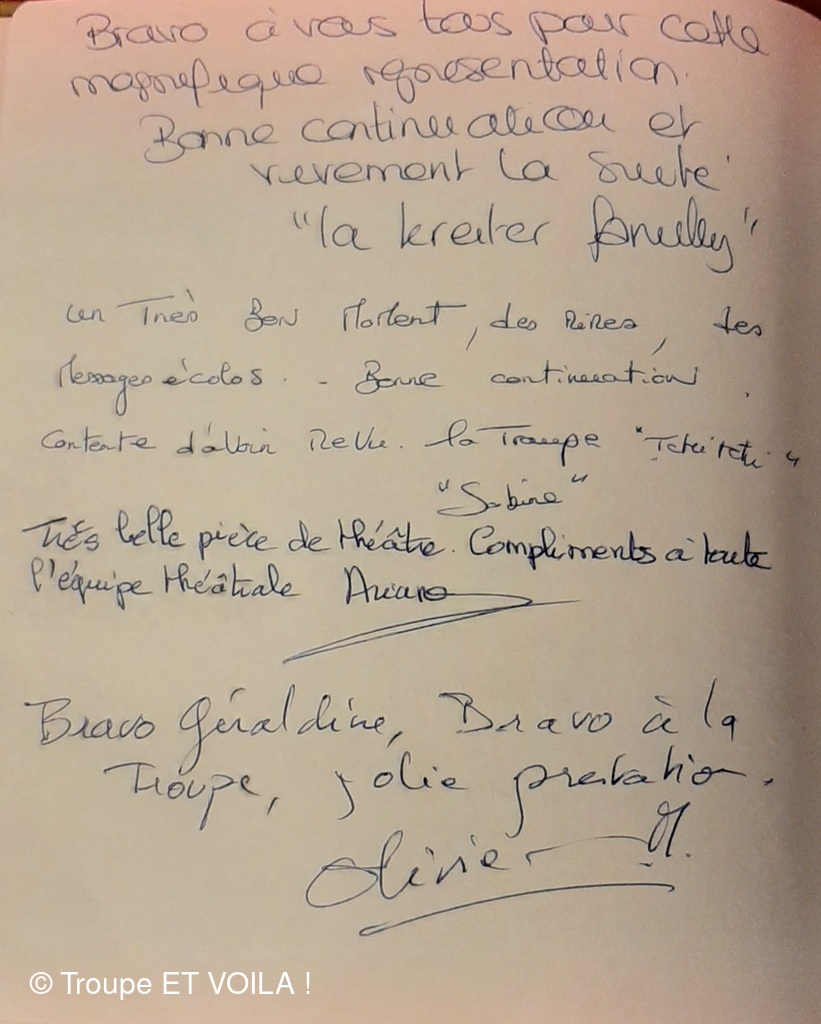 Bravo à vous tous pour cette
magnifique représentation.
Bonne continuation et
vivement la suite
"la kreiter family"
un Très Bon Moment, des Rires, des
Messages écolos. - Bonne continuation.
Contente d'avoir Revu. la Troupe
"Sabine"
Très belle pièce de théâtre. Compliments à toute
l'équipe théâtrale
Bravo Géraldine, Bravo à la
Troupe, jolie prestation.
Olivier M.
© Troupe ET VOILA !